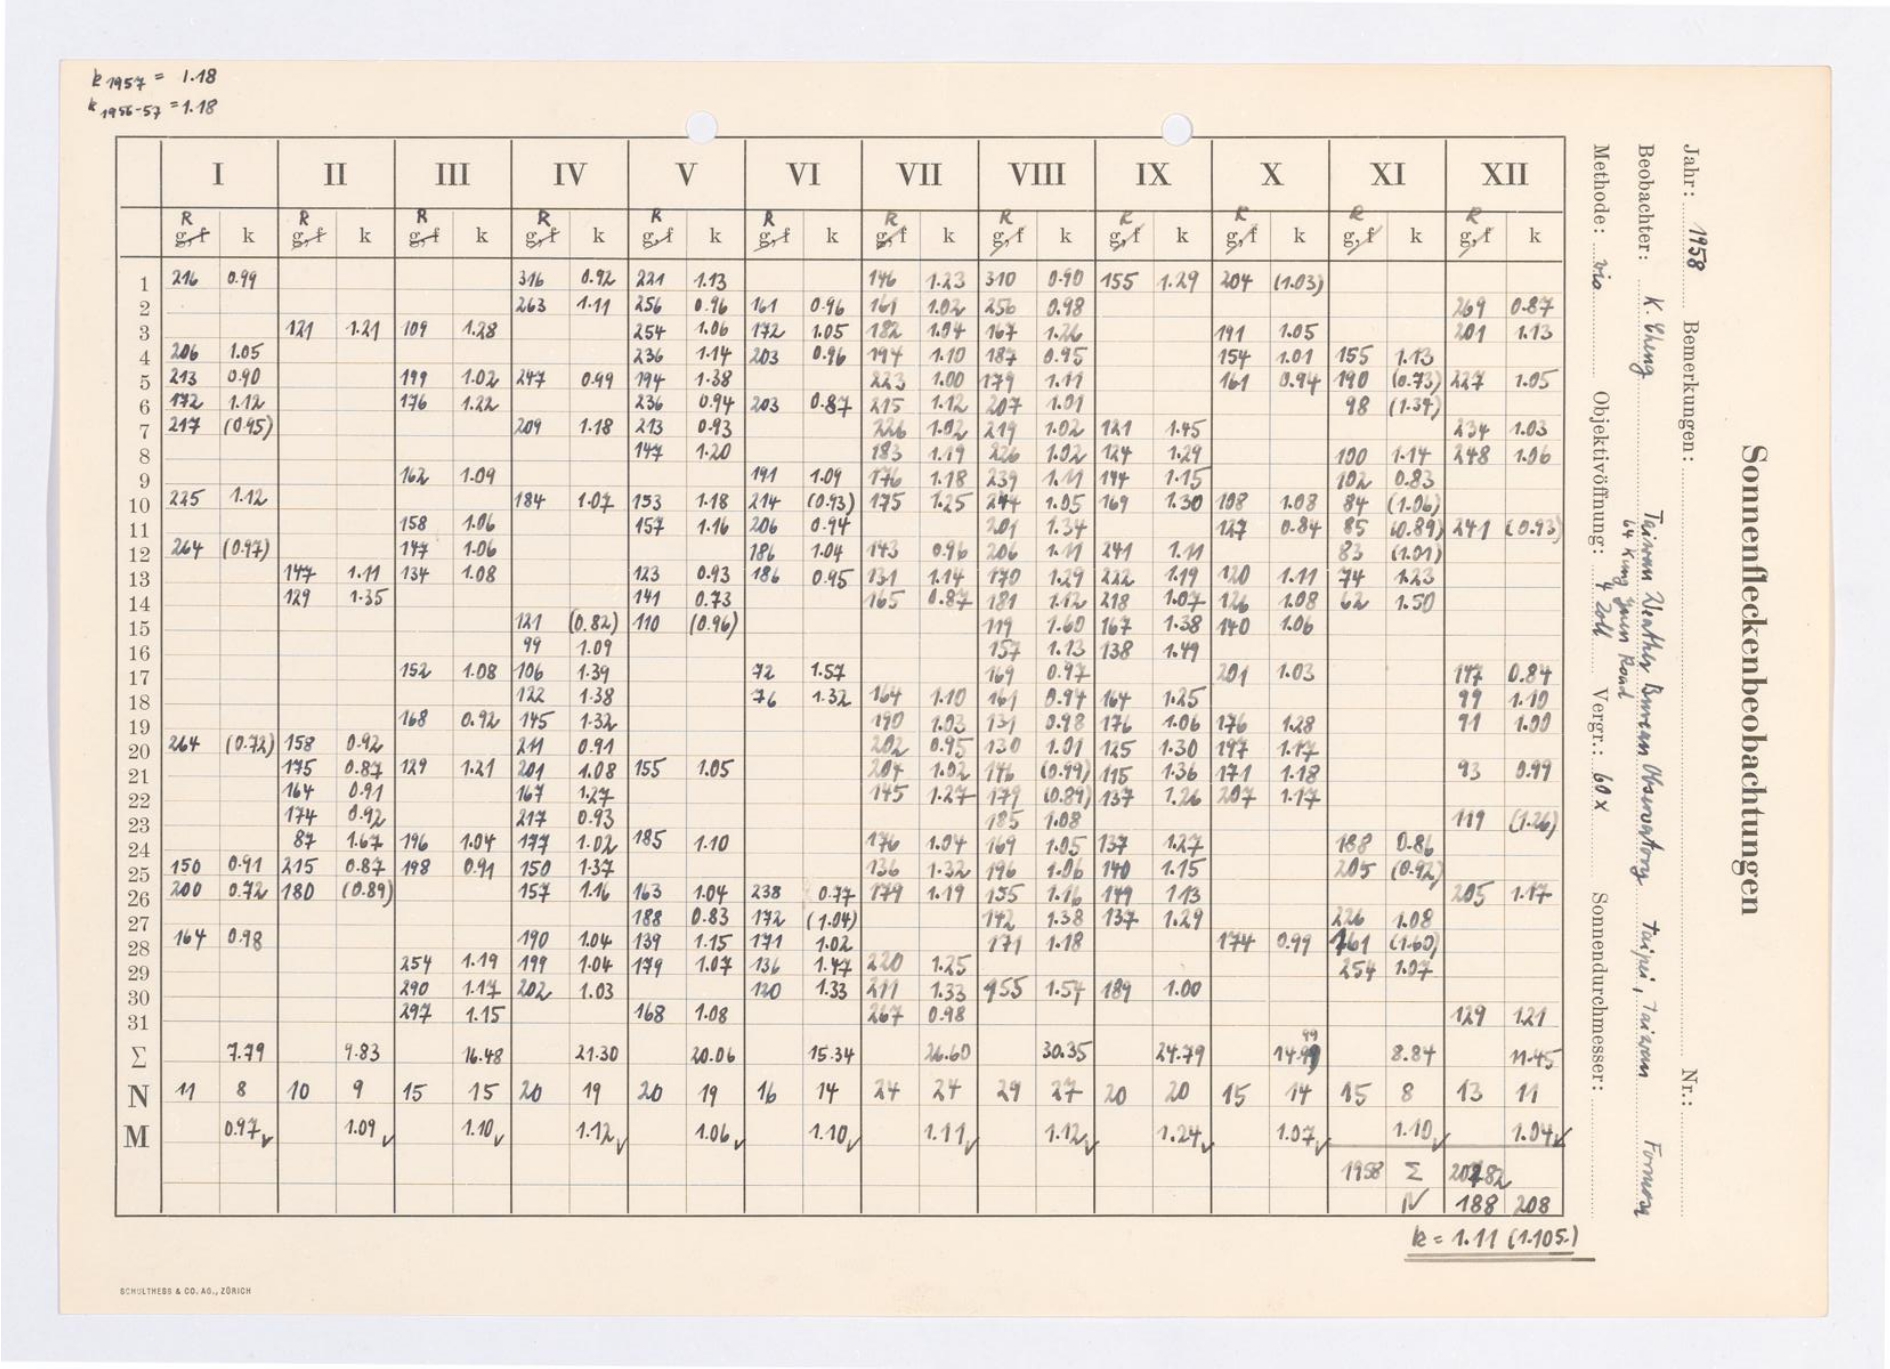 k 1957 = 1.18
k 1956-57 = 1.18
Sonnenfleckenbeobachtungen
Jahr: 1958 Bemerkungen: Nr.:
Beobachter: K. Cheng Taiwan Weather Bureau Observatory Taipei, Taiwan Formosa
64 Kung Yuen Road
Methode: vis Objektivöffnung: 4 Zoll Vergr.: 60 x Sonnendurchmesser:
I II III IV V VI VII VIII IX X XI XII
R R R R R R R R R R R R
g, f k g, f k g, f k g, f k g, f k g, f k g, f k g, f k g, f k g, f k g, f k g, f k
1 216 0.99 316 0.92 221 1.13 146 1.23 310 0.90 155 1.29 204 (1.03)
2 263 1.11 256 0.96 161 0.96 161 1.02 256 0.98 269 0.87
3 121 1.21 109 1.28 254 1.06 172 1.05 182 1.04 167 1.26 191 1.05 201 1.13
4 206 1.05 236 1.14 203 0.96 194 1.10 187 0.95 154 1.01 155 1.13
5 213 0.90 199 1.02 247 0.99 194 1.38 223 1.00 179 1.11 161 0.94 190 (0.73) 227 1.05
6 172 1.12 176 1.22 236 0.94 203 0.87 215 1.12 207 1.01 98 (1.34)
7 217 (0.95) 209 1.18 213 0.93 226 1.02 219 1.02 121 1.45 234 1.03
8 147 1.20 183 1.19 226 1.02 124 1.29 100 1.14 248 1.06
9 162 1.09 191 1.09 176 1.18 239 1.11 144 1.15 102 0.83
10 225 1.12 184 1.07 153 1.18 214 (0.93) 175 1.25 244 1.05 169 1.30 108 1.08 84 (1.06)
11 158 1.06 157 1.16 206 0.94 201 1.34 127 0.84 85 (0.89) 241 (0.93)
12 264 (0.97) 147 1.06 186 1.04 143 0.96 206 1.11 241 1.11 83 (1.01)
13 147 1.11 134 1.08 123 0.93 186 0.95 131 1.14 170 1.29 222 1.19 120 1.11 74 1.23
14 129 1.35 141 0.73 165 0.87 181 1.12 218 1.07 126 1.08 62 1.50
15 121 (0.82) 110 (0.96) 119 1.60 167 1.38 140 1.06
16 99 1.09 157 1.13 138 1.49
17 152 1.08 106 1.39 72 1.57 169 0.97 201 1.03 147 0.84
18 122 1.38 76 1.32 164 1.10 161 0.94 164 1.25 99 1.10
19 168 0.92 145 1.32 190 1.03 131 0.98 176 1.06 176 1.28 91 1.00
20 264 (0.72) 158 0.92 211 0.91 202 0.95 130 1.01 125 1.30 197 1.17
21 175 0.87 129 1.21 201 1.08 155 1.05 204 1.02 146 (0.99) 115 1.36 171 1.18 93 0.99
22 164 0.91 167 1.27 145 1.27 179 (0.89) 137 1.26 207 1.17
23 174 0.92 217 0.93 185 1.08 119 (1.26)
24 87 1.67 196 1.04 177 1.02 185 1.10 176 1.04 169 1.05 137 1.27 188 0.86
25 150 0.91 215 0.87 198 0.91 150 1.37 136 1.32 196 1.06 140 1.15 205 (0.92)
26 200 0.72 180 (0.89) 157 1.16 163 1.04 238 0.77 179 1.19 155 1.16 149 1.13 205 1.17
27 188 0.83 172 (1.04) 142 1.38 137 1.29 226 1.08
28 164 0.98 190 1.04 139 1.15 171 1.02 171 1.18 174 0.99 161 (1.60)
29 254 1.19 199 1.04 179 1.07 136 1.47 220 1.25 254 1.07
30 290 1.17 202 1.03 120 1.33 211 1.33 155 1.54 189 1.00
31 297 1.15 168 1.08 267 0.98 129 1.21
Σ 7.79 9.83 16.48 21.30 20.06 15.34 26.60 30.35 24.79 14.99 8.84 11.45
N 11 8 10 9 15 15 20 19 20 19 16 14 24 24 29 27 20 20 15 14 15 8 13 11
M 0.97 1.09 1.10 1.12 1.06 1.10 1.11 1.12 1.24 1.07 1.10 1.04
1958 Σ 207.82
N 188 208
k = 1.11 (1.105)
SCHULTHESS & CO. AG., ZÜRICH